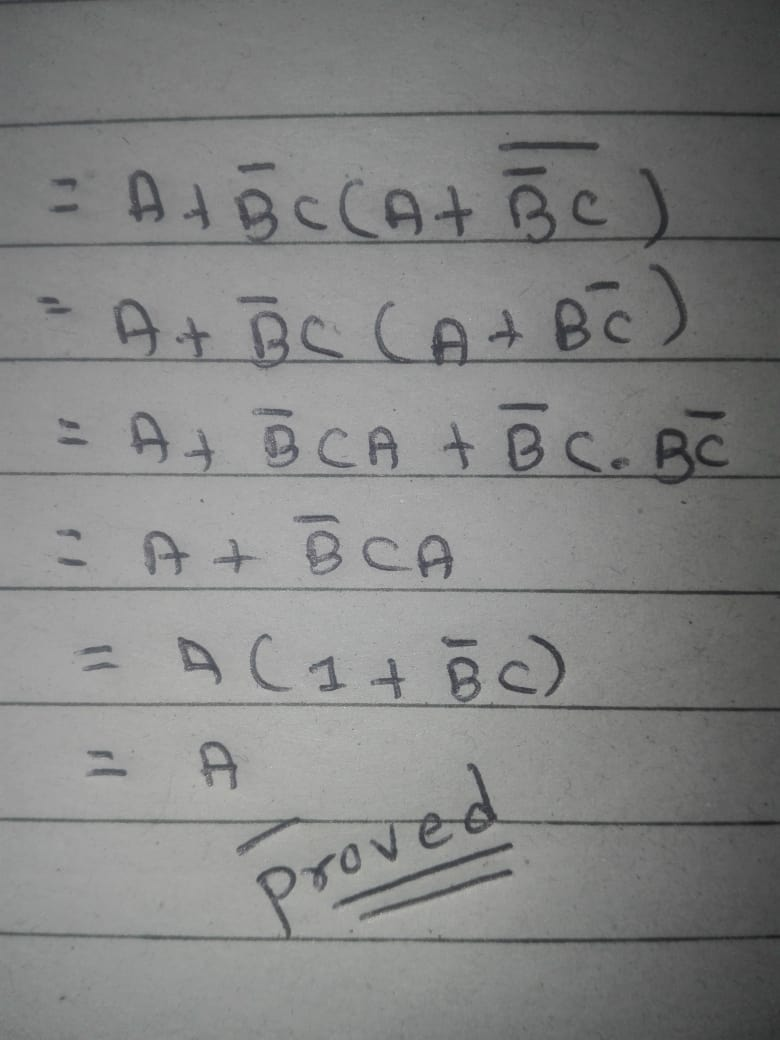 = A + B̅C(A + \overline{B̅C})
= A + B̅C (A + BC̅)
= A + B̅CA + B̅C.BC̅
= A + B̅CA
= A(1 + B̅C)
= A
proved